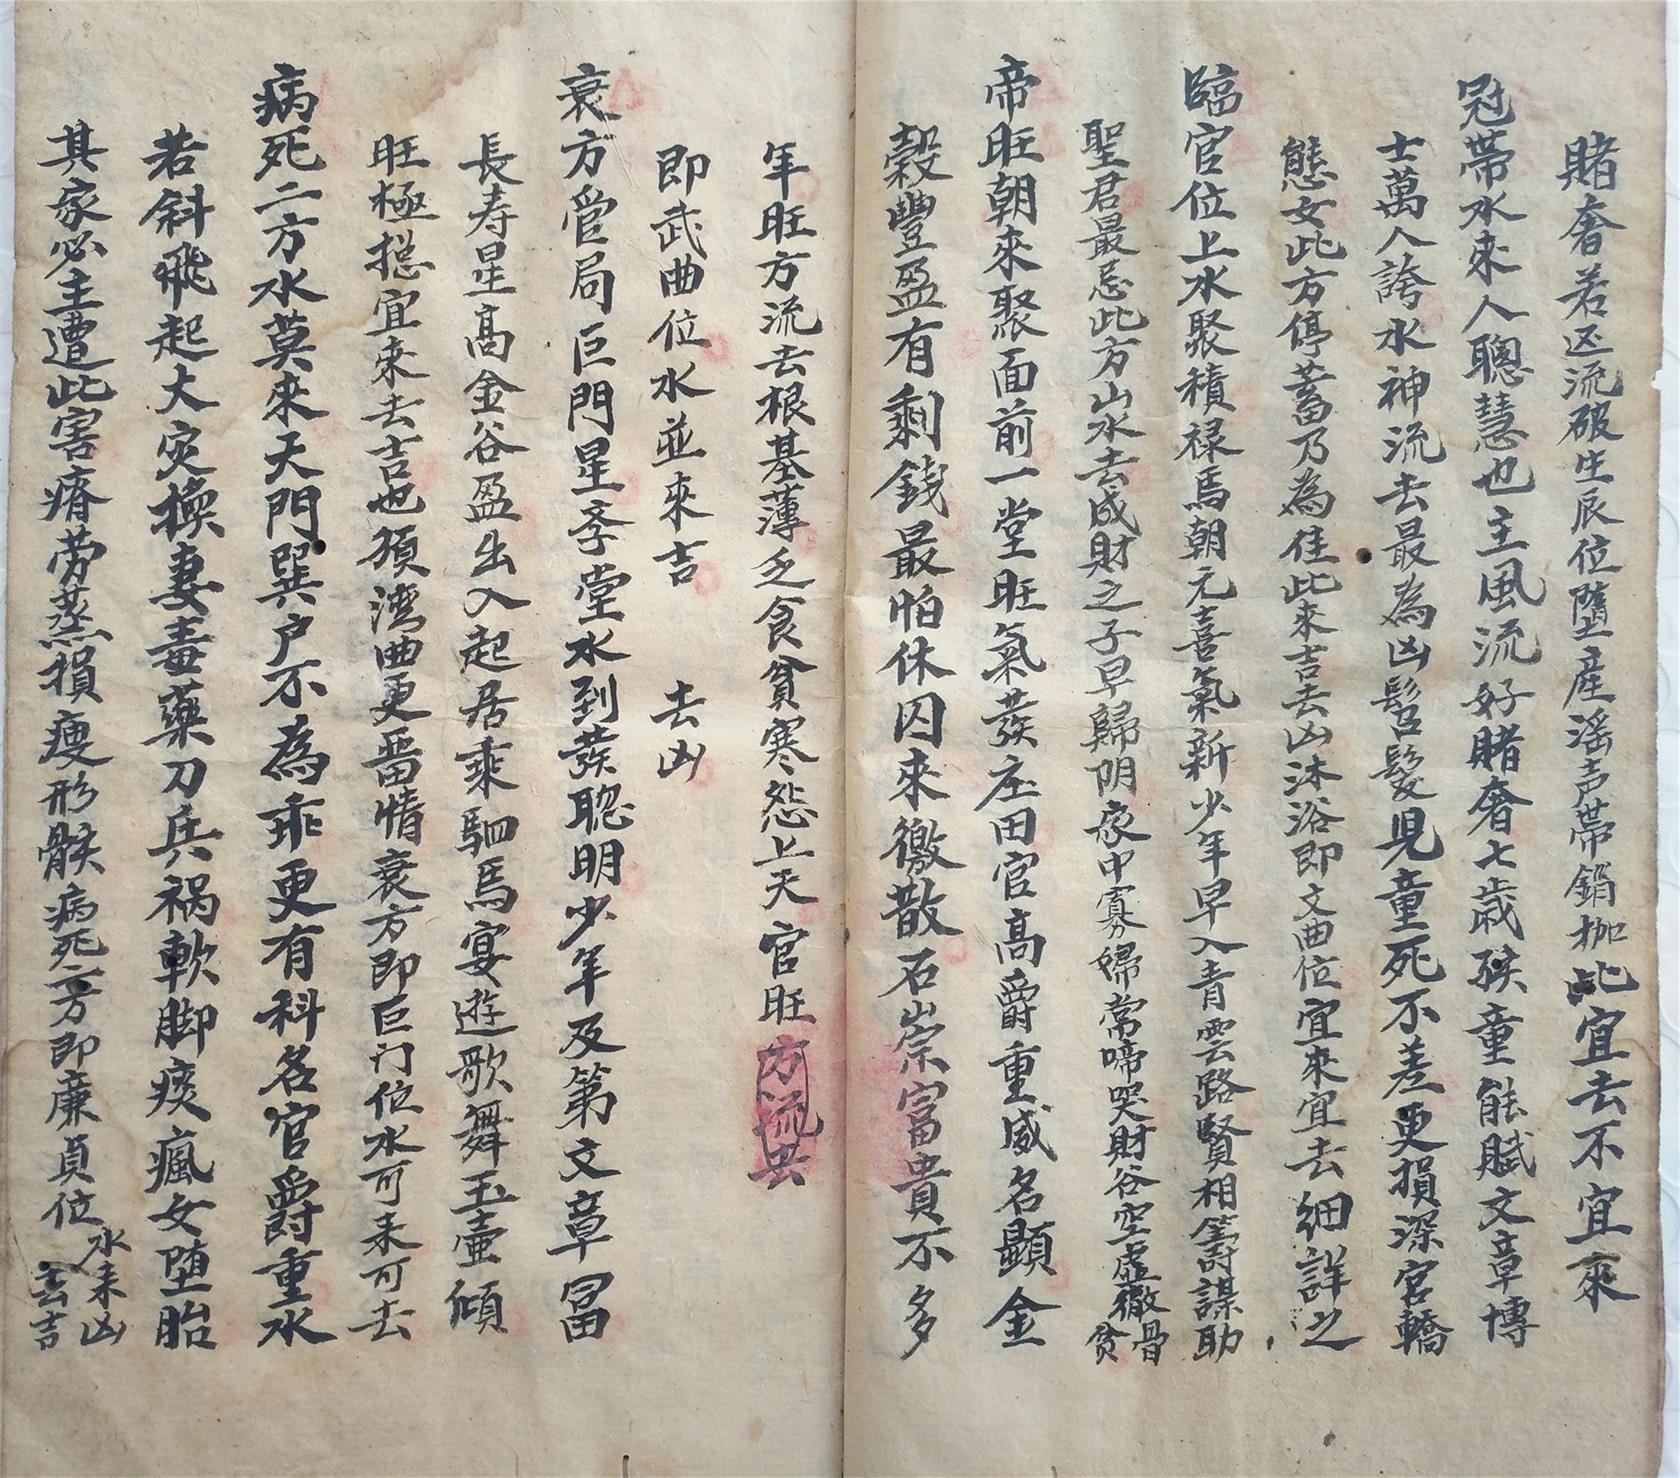 賭奢若迯流破生辰位墮產滛声帶鎖枷此宜去不宜來
冠帶水來人聰慧也主風流好賭奢七歲孩童能賦文章博
士萬人誇水神流去最為凶髫髮児童死不差更損深宮轎
態女此方停蓄乃為佳此来吉去凶沐浴即文曲位宜來宜去細詳之
臨官位上水聚積禄馬朝元喜氣新少年早入青雲路賢相籌謀助
聖君最忌此方山水去成財之子早歸阴家中寡婦常啼哭財谷空虛徹骨貧
帝旺朝來聚面前一堂旺氣發庄田官高爵重威名顯金
穀豐盈有剩錢最怕休囚來徼散石崇富貴不多
年旺方流去根基薄乏食貧寒怨上天官旺方流去
即武曲位水並來吉 去凶
衰方管局巨門星斈堂水到發聰明少年及第文章冨
長寿星高金谷盈出入起居乘駟馬宴遊歌舞玉壺傾
旺極摠宜来去吉也須湾曲更畱情衰方即巨门位水可来可去
病死二方水莫來天門巽户不為乖更有科名官爵重水
若斜飛起大灾換妻毒藥刀兵禍軟脚痰瘋女堕胎
其家必主遭此害瘠劳蒸損瘦形骸病死二方即廉貞位水来凶去吉